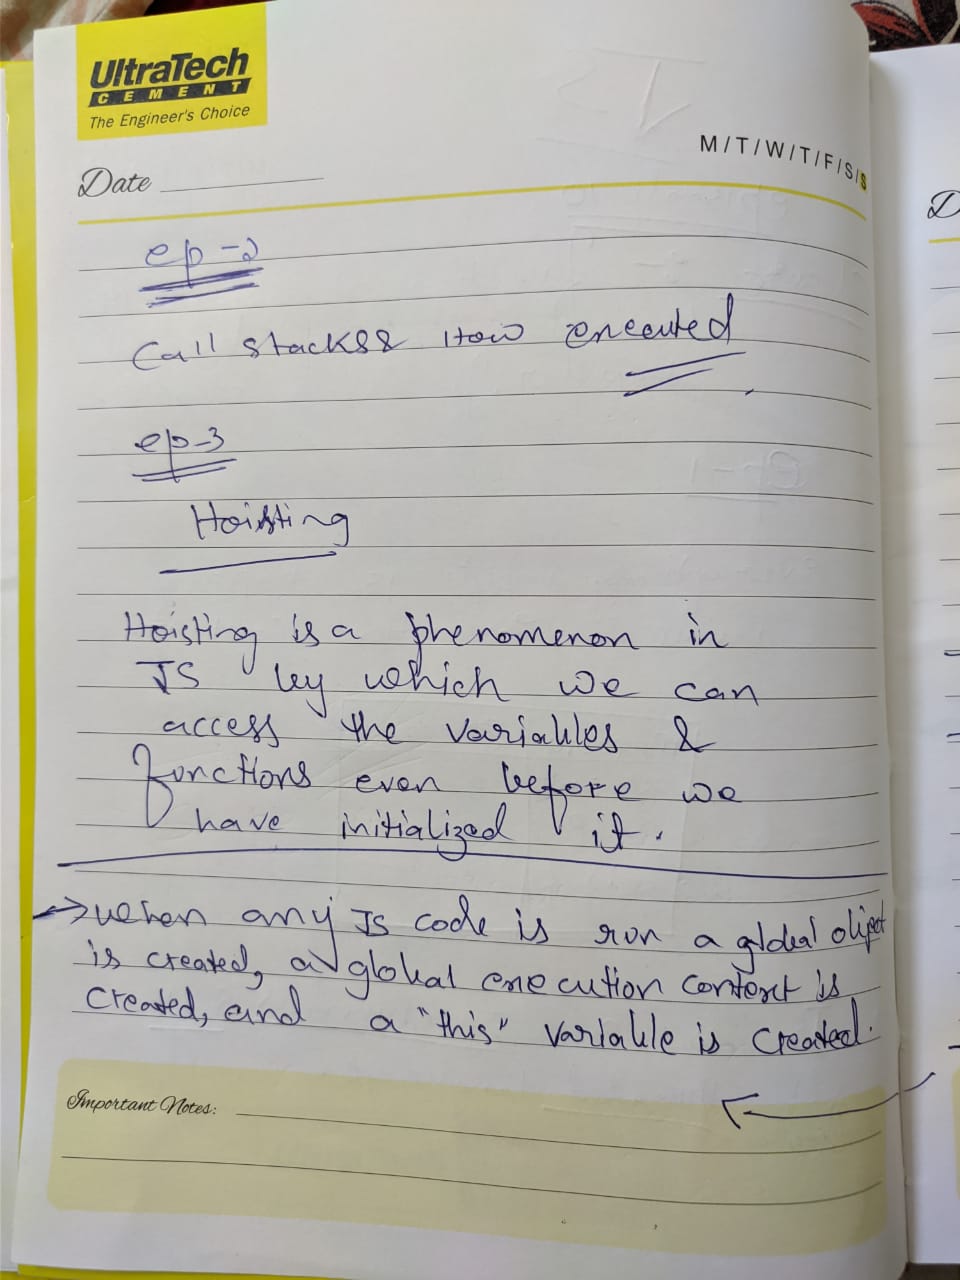 UltraTech
CEMENT
The Engineer's Choice
M/T/W/T/F/S/S
Date
ep-2
Call stacks& How executed
ep-3
Hoisting
Hoisting is a phenomenon in
JS by which we can
access the variables &
functions even before we
have initialized it.
→ when any JS code is run a global object
is created, a global execution context is
created, and a "this" variable is created.
Important Notes: